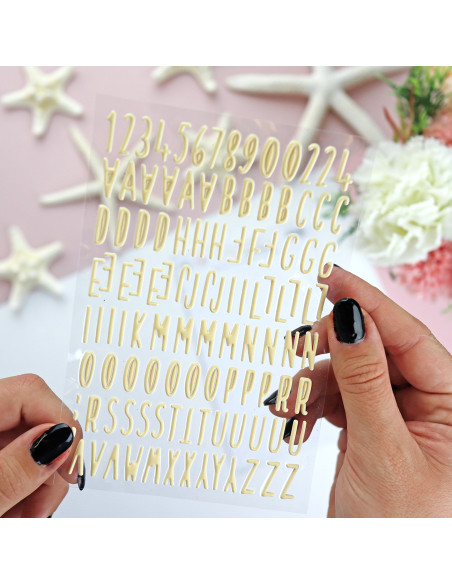 12345678900224
AAAAAABBBBCCC
DDDDHHHFFGGG
EEE
IIIIKMMMMNNN
OOOOOOOPPPRR
RSSSSTITUUUUU
VAWXXYYZZZ